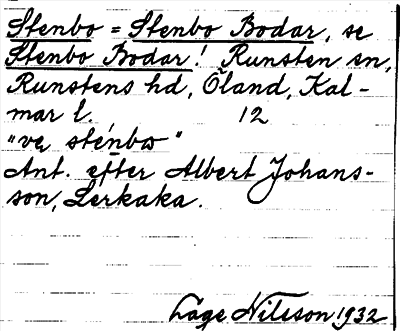 Stenbo = Stenbo Bodar, se
Stenbo Bodar! Runsten sn,
Runstens hd, Öland, Kal-
mar l. 12
"va sténbω"
Ant. efter Albert Johans-
son, Lerkaka.
Lage Nilsson 1932